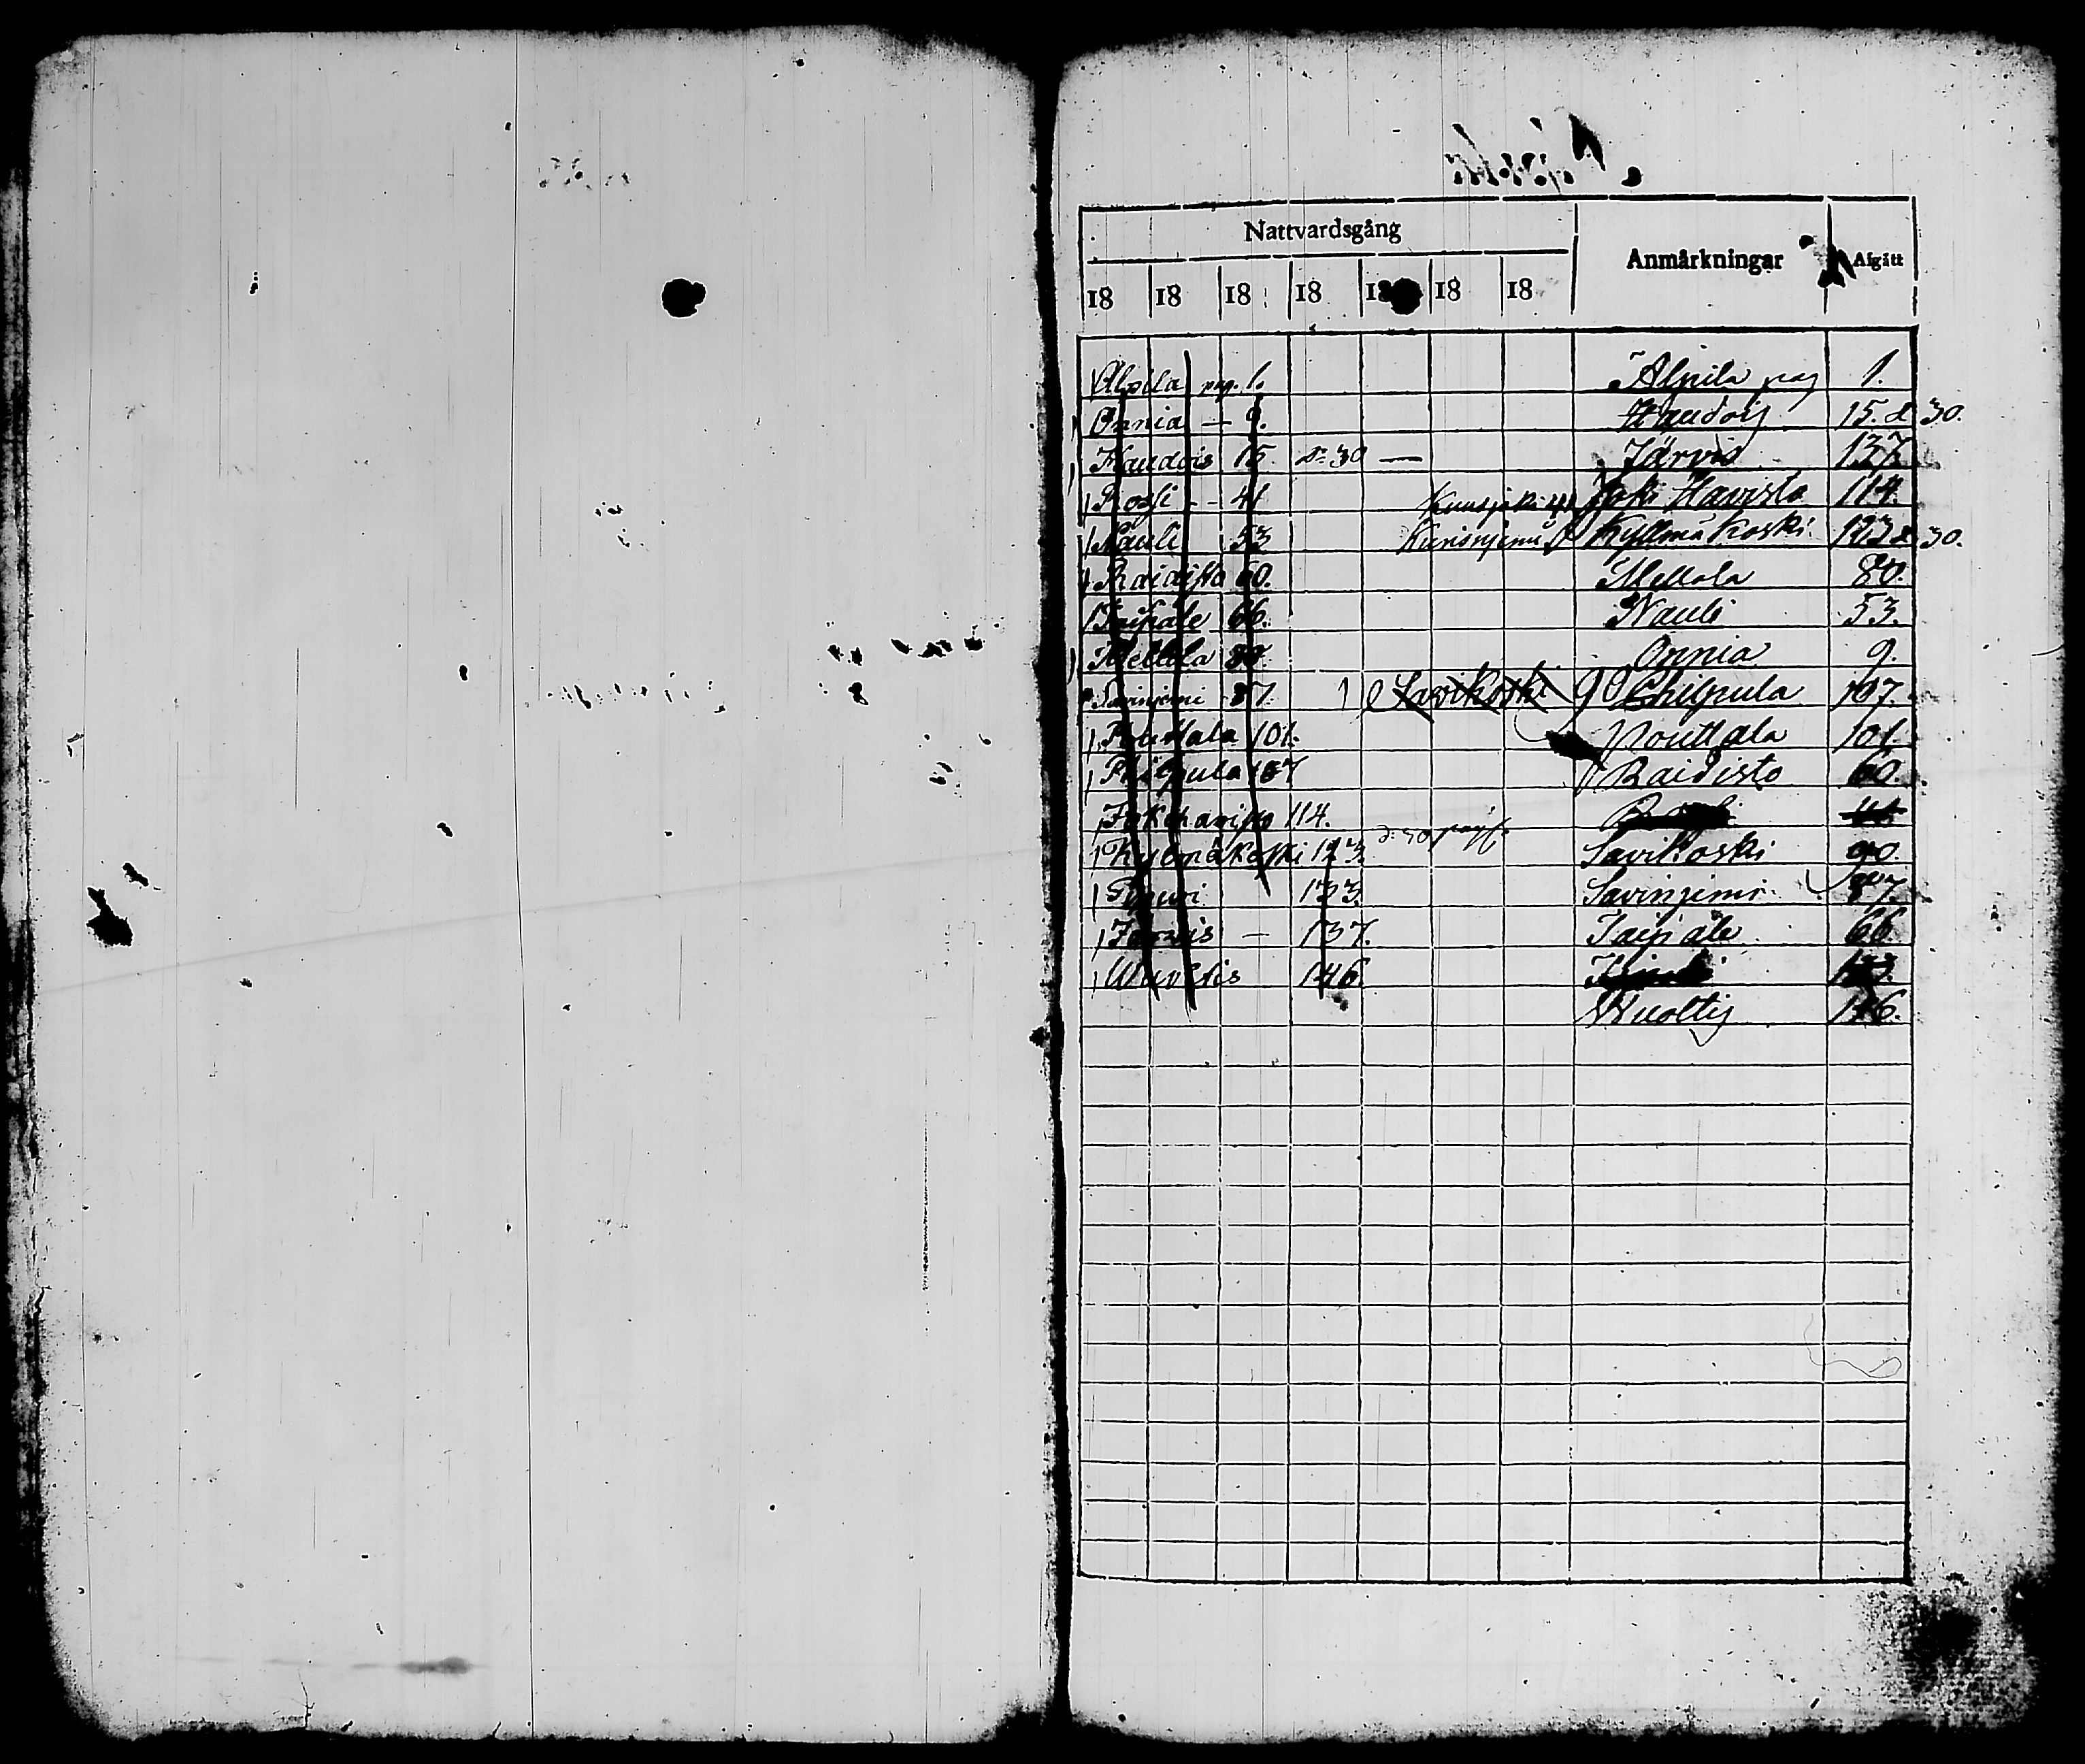 Nattvardsgång Anmärkningar Afgått
18 18 18 18 18 18 18
Alpila pag. 1. Alpila pag 1.
Onnia — 9. Haudois 15. & 30.
Haudois 15. & 30 — Järvis 137.
Rossi - - 41 Kuusjoki 41 Joki Havisto 114.
Nauli 53 Kurisnjemi Kyllmä Koski 123 & 30.
Raidisto 60. Mellola 80.
Taipale 66. Nauli 53.
Mellola 80. Onnia 9.
Savinjemi 87. Savikoski 90 Philpula 107.
Pouttala 101. Pouttala 101.
Philpula 107 Raidisto 60.
Jokihavisto 114.
Kylmäkoski 123. & 30 Savikoski 90.
133. Savinjemi 87.
Järvis — 137. Taipale 66.
Wuoltis 146.
Wuoltis 146.